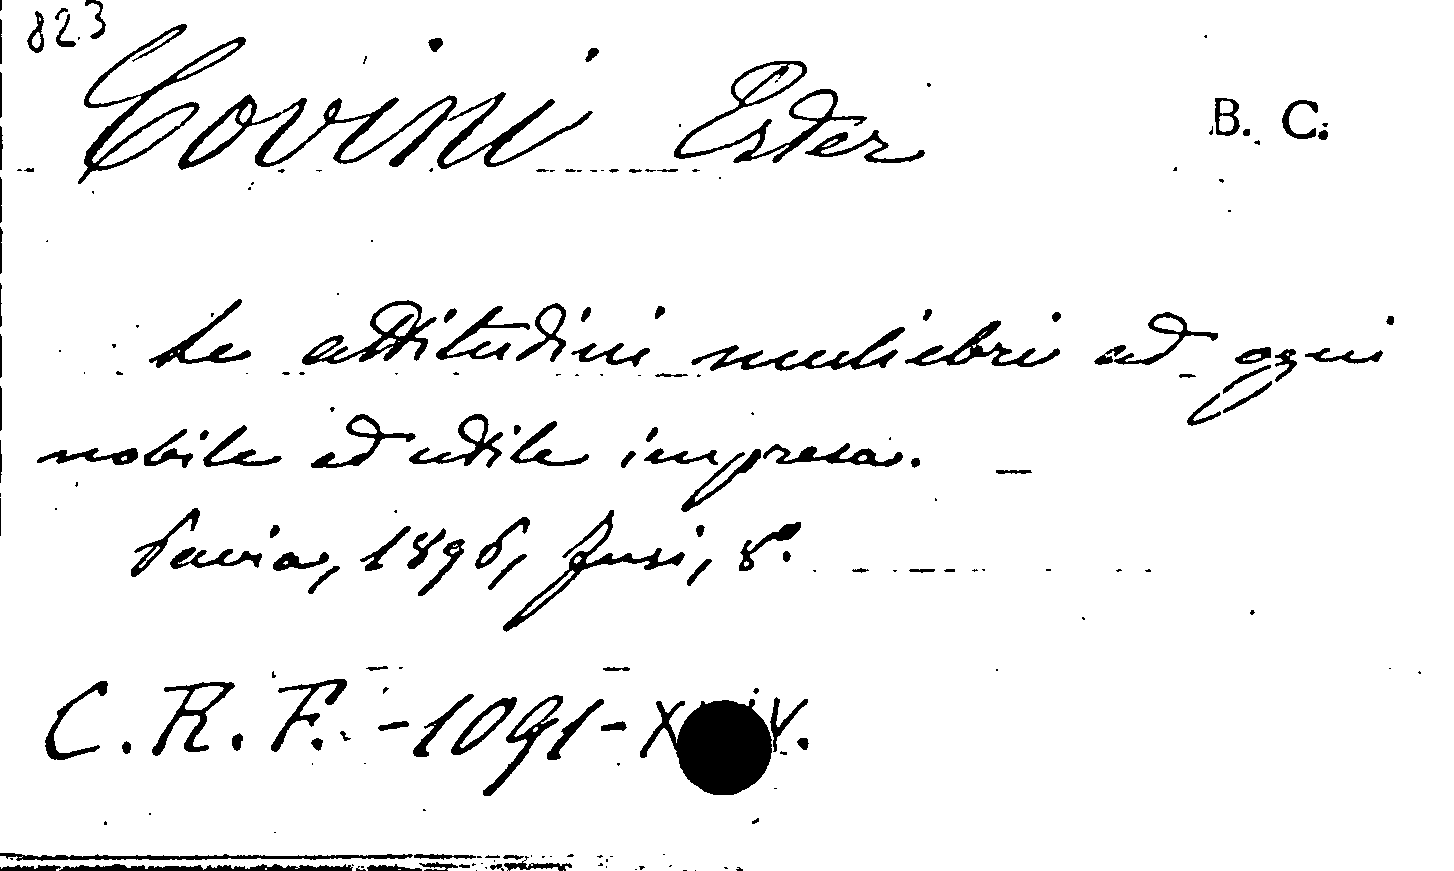 823
Covini Ester
B. C.
Le attitudini muliebri ad ogni
nobile ed utile impresa. —
Pavia, 1896, Fusi, 8º.
C. R. F. - 1091 -